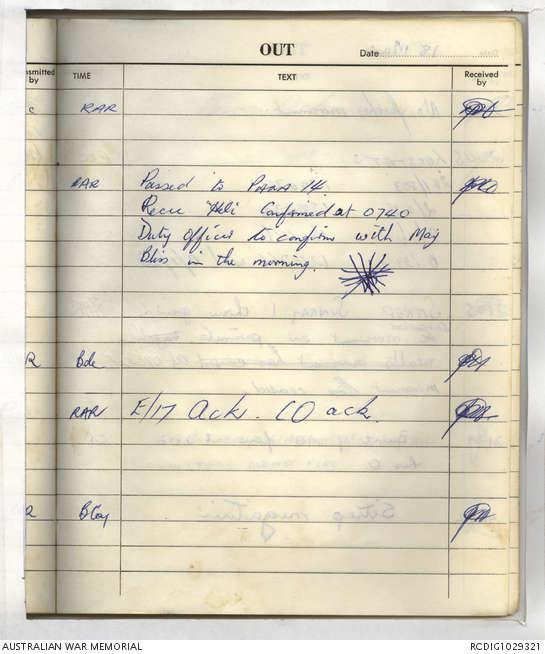 OUT
Date
nsmitted by
TIME
TEXT
Received by
c RAR
RAR Passed to PARA 14.
Recce Heli Confirmed at 0740
Duty officer to confirm with Maj
Bliss in the morning.
R Bde
RAR E/17 Ack. CO ack.
R B Coy
AUSTRALIAN WAR MEMORIAL
RCDIG1029321